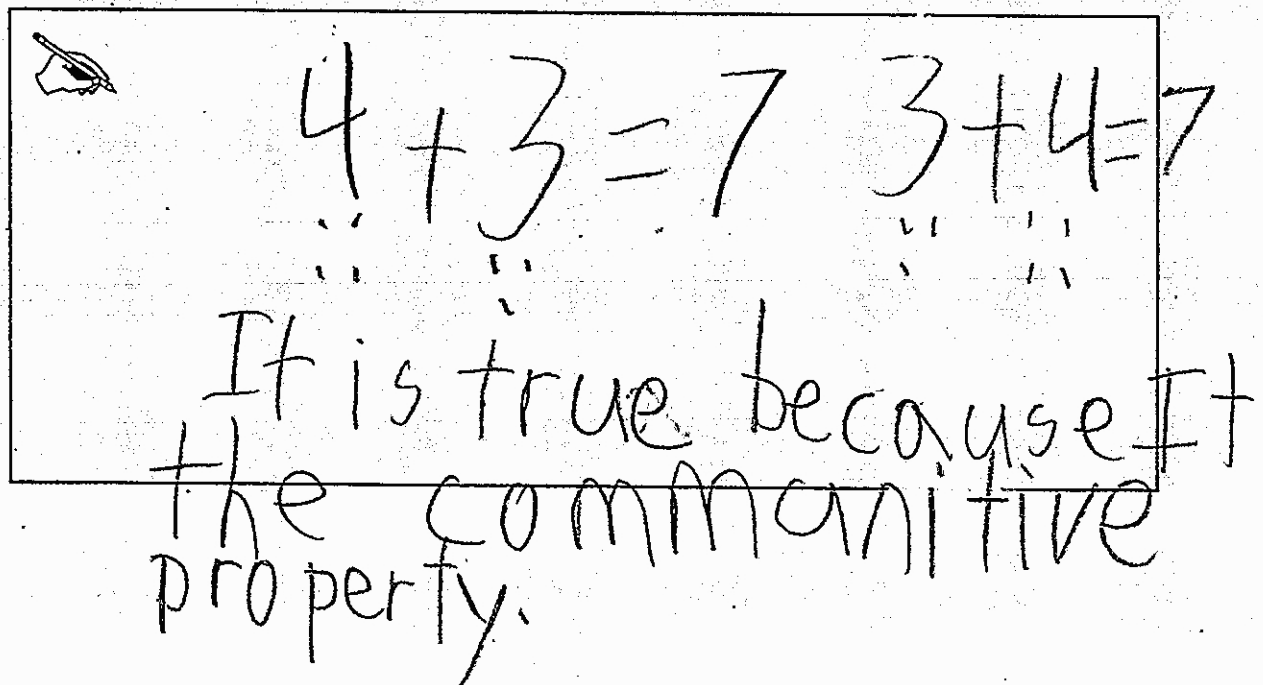 4 + 3 = 7 3 + 4 = 7
It is true because It
the commanitive
property.